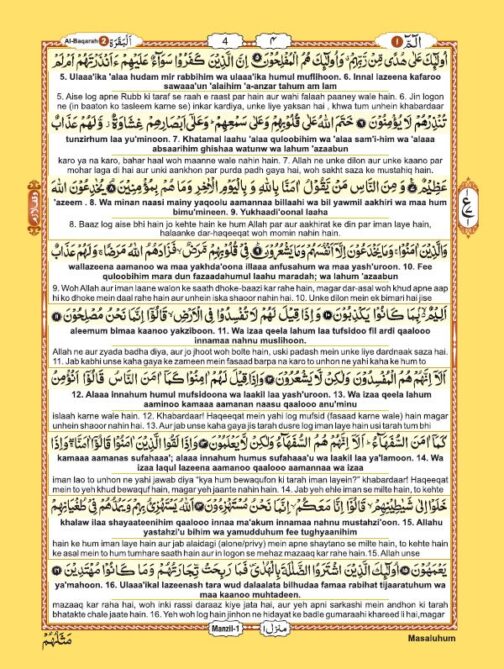 Al-Baqarah 2 اَلْبَقَرَة 4 ٤ الٓمّٓ ١
اُولٰٓئِكَ عَلٰى هُدًى مِّنْ رَّبِّهِمْ وَاُولٰٓئِكَ هُمُ الْمُفْلِحُوْنَ ۝ اِنَّ الَّذِيْنَ كَفَرُوْا سَوَآءٌ عَلَيْهِمْ ءَاَنْذَرْتَهُمْ اَمْ لَمْ
5. Ulaaa'ika 'alaa hudam mir rabbihim wa ulaaa'ika humul muflihoon. 6. Innal lazeena kafaroo
sawaaa'un 'alaihim 'a-anzar tahum am lam
5. Aise log apne Rubb ki taraf se raah e raast par hain aur wahi falaah paaney wale hain. 6. Jin logon
ne (in baaton ko tasleem karne se) inkar kardiya, unke liye yaksan hai , khwa tum unhein khabardaar
تُنْذِرْهُمْ لَا يُؤْمِنُوْنَ ۝ خَتَمَ اللّٰهُ عَلٰى قُلُوْبِهِمْ وَعَلٰى سَمْعِهِمْ وَعَلٰٓى اَبْصَارِهِمْ غِشَاوَةٌ وَّلَهُمْ عَذَابٌ
tunzirhum laa yu'minoon. 7. Khatamal laahu 'alaa quloobihim wa 'alaa sam'i-him wa 'alaaa
absaarihim ghishaa watunw wa lahum 'azaabun
karo ya na karo, bahar haal woh maanne wale nahin hain. 7. Allah ne unke dilon aur unke kaano par
mohar laga di hai aur unki aankhon par purda padh gaya hai, woh sakht saza ke mustahiq hain.
عَظِيْمٌ ۝ وَ مِنَ النَّاسِ مَنْ يَّقُوْلُ اٰمَنَّا بِاللّٰهِ وَ بِالْيَوْمِ الْاٰخِرِ وَمَا هُمْ بِمُؤْمِنِيْنَ ۝ يُخٰدِعُوْنَ اللّٰهَ
'azeem . 8. Wa minan naasi mainy yaqoolu aamannaa billaahi wa bil yawmil aakhiri wa maa hum
bimu'mineen. 9. Yukhaadi'oonal laaha
8. Baaz log aise bhi hain jo kehte hain ke hum Allah par aur aakherat ke din par iman laye hain,
halaanke dar-haqeeqat woh momin nahin hain.
وَالَّذِيْنَ اٰمَنُوْا ۚ وَمَا يَخْدَعُوْنَ اِلَّآ اَنْفُسَهُمْ وَمَا يَشْعُرُوْنَ ۝ فِيْ قُلُوْبِهِمْ مَّرَضٌ ۙ فَزَادَهُمُ اللّٰهُ مَرَضًا ۚ وَلَهُمْ عَذَابٌ
wallazeena aamanoo wa maa yakhda'oona illaaa anfusahum wa maa yash'uroon. 10. Fee
quloobihim mara dun fazaadahumul laahu maradah; wa lahum 'azaabun
9. Woh Allah aur iman laane walon ke saath dhoke-baazi kar rahe hain, magar dar-asal woh khud apne aap
hi ko dhoke mein daal rahe hain aur unhein iska shaoor nahin hai. 10. Unke dilon mein ek bimari hai jise
اَلِيْمٌۢ ۙ بِمَا كَانُوْا يَكْذِبُوْنَ ۝ وَاِذَا قِيْلَ لَهُمْ لَا تُفْسِدُوْا فِي الْاَرْضِ ۙ قَالُوْٓا اِنَّمَا نَحْنُ مُصْلِحُوْنَ ۝
aleemum bimaa kaanoo yakziboon. 11. Wa izaa qeela lahum laa tufsidoo fil ardi qaalooo
innamaa nahnu muslihoon.
Allah ne aur zyada badha diya, aur jo jhoot woh bolte hain, uski padash mein unke liye dardnaak saza hai.
11. Jab kabhi unse kaha gaya ke zameen mein fasaad barpa na karo to unhon ne yahi kaha ke hum to
اَلَآ اِنَّهُمْ هُمُ الْمُفْسِدُوْنَ وَلٰكِنْ لَّا يَشْعُرُوْنَ ۝ وَاِذَا قِيْلَ لَهُمْ اٰمِنُوْا كَمَآ اٰمَنَ النَّاسُ قَالُوْٓا اَنُؤْمِنُ
12. Alaaa innahum humul mufsidoona wa laakil laa yash'uroon. 13. Wa izaa qeela lahum
aaminoo kamaaa aamanan naasu qaalooo anu'minu
islaah karne wale hain. 12. Khabardaar! Haqeeqat mein yahi log mufsid (fasaad karne wale) hain, magar
unhein shaoor nahin hai. 13. Aur jab unse kaha gaya jis tarah dusre log iman laye hain usi tarah tum bhi
كَمَآ اٰمَنَ السُّفَهَآءُ ؕ اَلَآ اِنَّهُمْ هُمُ السُّفَهَآءُ وَلٰكِنْ لَّا يَعْلَمُوْنَ ۝ وَاِذَا لَقُوا الَّذِيْنَ اٰمَنُوْا قَالُوْٓا اٰمَنَّا ۚ وَاِذَا
kamaaa aamanas sufahaaa'; alaaa innahum humus sufahaaa'u wa laakil laa ya'lamoon. 14. Wa
izaa laqul lazeena aamanoo qaalooo aamannaa wa izaa
iman lao to unhon ne yahi jawab diya "kya hum bewaqufon ki tarah iman layein?" khabardaar! Haqeeqat
mein to yeh khud bewaquf hain, magar yeh jaante nahin hain. 14. Jab yeh ehle iman se milte hain, to kehte
خَلَوْا اِلٰى شَيٰطِيْنِهِمْ ۙ قَالُوْٓا اِنَّا مَعَكُمْ ۙ اِنَّمَا نَحْنُ مُسْتَهْزِءُوْنَ ۝ اَللّٰهُ يَسْتَهْزِئُ بِهِمْ وَيَمُدُّهُمْ فِيْ طُغْيَانِهِمْ
khalaw ilaa shayaateenihim qaalooo innaa ma'akum innamaa nahnu mustahzi'oon. 15. Allahu
yastahzi'u bihim wa yamudduhum fee tughyaanihim
hain ke hum iman laye hain aur jab alaidagi (alone/privy) mein apne shaytano se milte hain, to kehte hain
ke asal mein to hum tumhare saath hain aur in logon se mehaz mazaaq kar rahe hain. 15. Allah unse
يَعْمَهُوْنَ ۝ اُولٰٓئِكَ الَّذِيْنَ اشْتَرَوُا الضَّلٰلَةَ بِالْهُدٰى ۪ فَمَا رَبِحَتْ تِّجَارَتُهُمْ وَمَا كَانُوْا مُهْتَدِيْنَ ۝
ya'mahoon. 16. Ulaaa'ikal lazeenash tara wud dalaalata bilhudaa famaa rabihat tijaaratuhum wa
maa kaanoo muhtadeen.
mazaaq kar raha hai, woh inki rassi daraaz kiye jata hai, aur yeh apni sarkashi mein andhon ki tarah
bhatakte chale jaate hain. 16. Yeh woh log hain jinhon ne hidayat ke badle gumaraahi khareed li hai,magar
Manzil-1 منزل ١
مَثَلُهُمْ Masaluhum